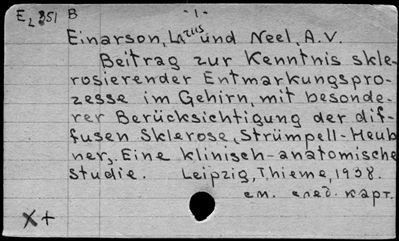 E₂ 351 B -1-
Einarson, Larus und Neel, A.V.
Beitrag zur Kenntnis skle-
rosierender Entmarkungspro-
zesse im Gehirn, mit besonde-
rer Berücksichtigung der dif-
fusen Sklerose, Strümpell-Heub
ner,. Eine klinisch-anatomische
Studie. Leipzig, Thieme, 1938.
см. след. карт.
X+